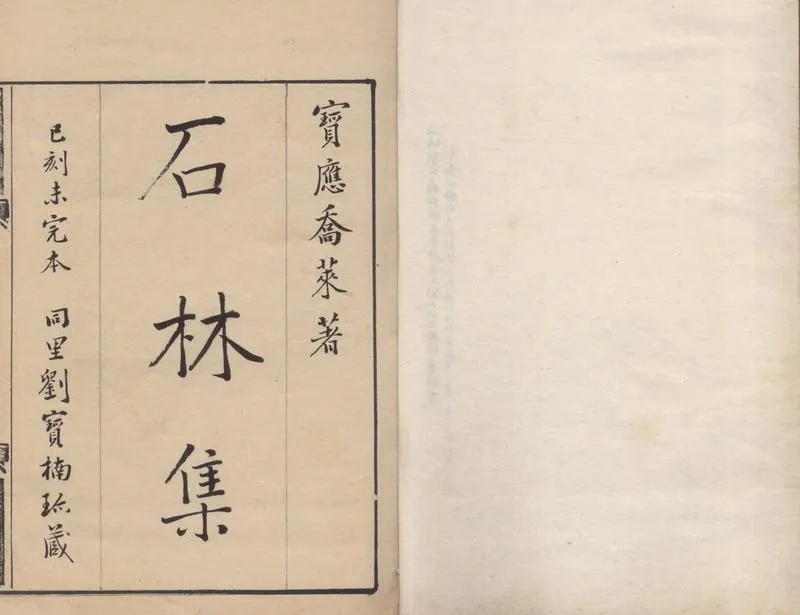 寶應喬萊著
石林集
已刻未完本 同里劉寶楠珎藏